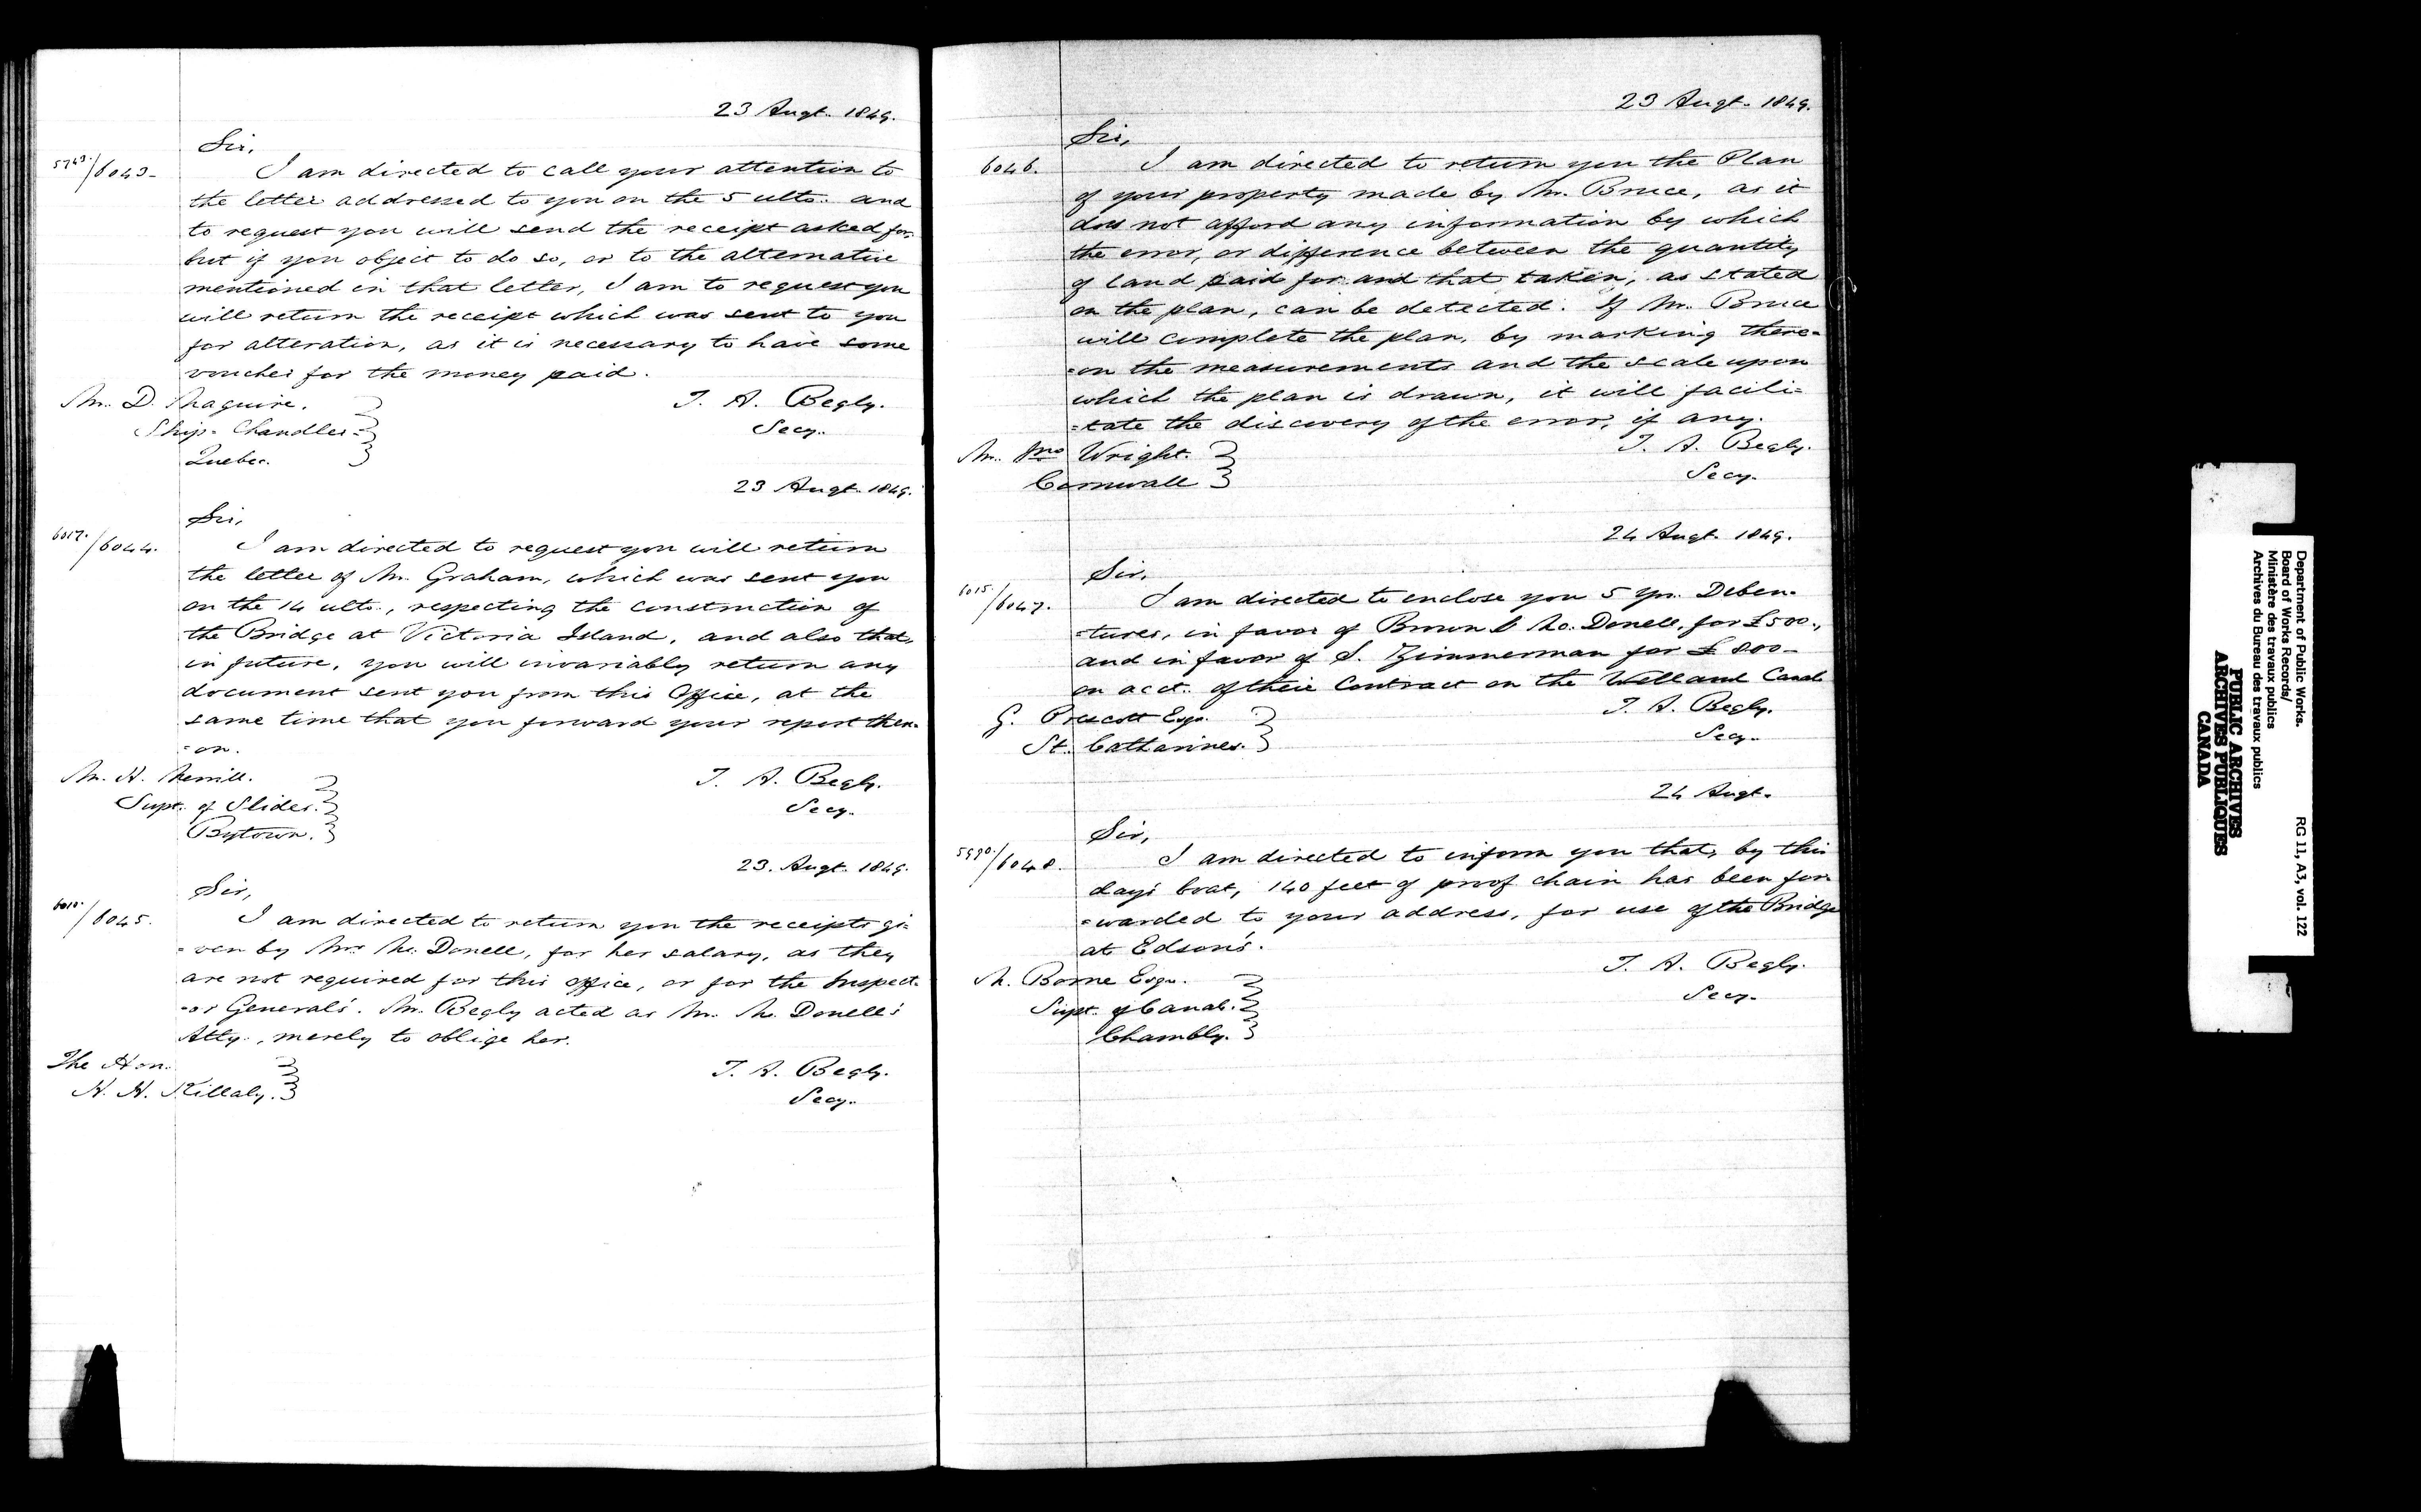 23 Augt. 1849.
Sir,
5743./6043-
I am directed to call your attention to
the letter addressed to you on the 5 ulto. and
to request you will send the receipt asked for,
but if you object to do so, or to the alternative
mentioned in that letter, I am to request you
will return the receipt which was sent to you
for alteration, as it is necessary to have some
voucher for the money paid.
Mr. D. Maguire.
Ship-Chandler-
Quebec.
T. A. Begly.
Secy.
23 Augt. 1849.
Sir,
6017./6044.
I am directed to request you will return
the letter of Mr. Graham, which was sent you
on the 14 ulto., respecting the construction of
the Bridge at Victoria Island, and also that,
in future, you will invariably return any
document sent you from this Office, at the
same time that you forward your report there-
=on.
Mr. H. Merrill.
Supt. of Slides.
Bytown.
T. A. Begly.
Secy.
23. Augt. 1849.
Sir,
/6045.
I am directed to return you the receipts gi=
=ven by Mrs Mc.Donell, for her salary, as they
are not required for this office, or for the Inspect-
=or General's. Mr. Begly acted as Mrs. Mc. Donell's
Atty., merely to oblige her.
The Hon.
H. H. Killaly.
T. A. Begly.
Secy.
23 Augt. 1849.
Sir,
6046.
I am directed to return you the Plan
of your property made by Mr. Bruce, as it
does not afford any information by which
the error, or difference between the quantity
of land paid for and that taken, as stated
on the plan, can be detected. If Mr. Bruce
will complete the plan, by marking there=
=on the measurements and the scale upon
which the plan is drawn, it will facili=
=tate the discovery of the error, if any.
Mr. Jno Wright.
Cornwall
T. A. Begly.
Secy.
24 Augt. 1849.
Sir,
6015./6047.
I am directed to enclose you 5 yr. Deben-
=tures, in favor of Brown & Mc.Donell, for £500.,
and in favor of S. Zimmerman for £800-
on acct. of their Contract on the Welland Canal.
G. Prescott Esqr.
St. Catharines.
T. A. Begly.
Secy.
24 Augt.
Sir,
5990./6048.
I am directed to inform you that, by this
days boat, 140 feet of proof chain has been for-
=warded to your address, for use of the Bridge
at Edson's.
Borne Esqr.
Supt. of Canal.
Chambly.
T. A. Begly.
Secy.
Department of Public Works.
Board of Works Records/
Ministère des travaux publics
Archives du Bureau des travaux publics
RG 11, A3, vol. 122
PUBLIC ARCHIVES
ARCHIVES PUBLIQUES
CANADA